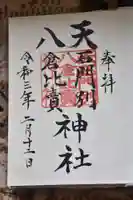 奉拝
天石門別
八倉比賣
神社
令和三年
二月十三日